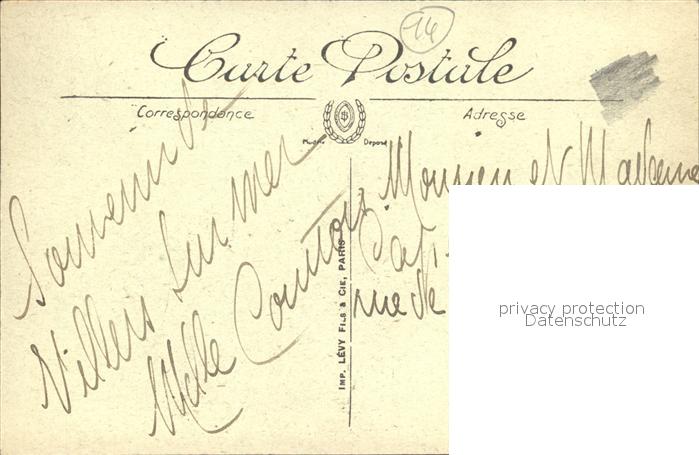 14
Carte Postale
Correspondance
Adresse
Marque Déposée
Souvenir de
Villers sur mer
Melle
Monsieur et Madame
rue de
IMP. LÉVY FILS & CIE, PARIS
privacy protection
Datenschutz